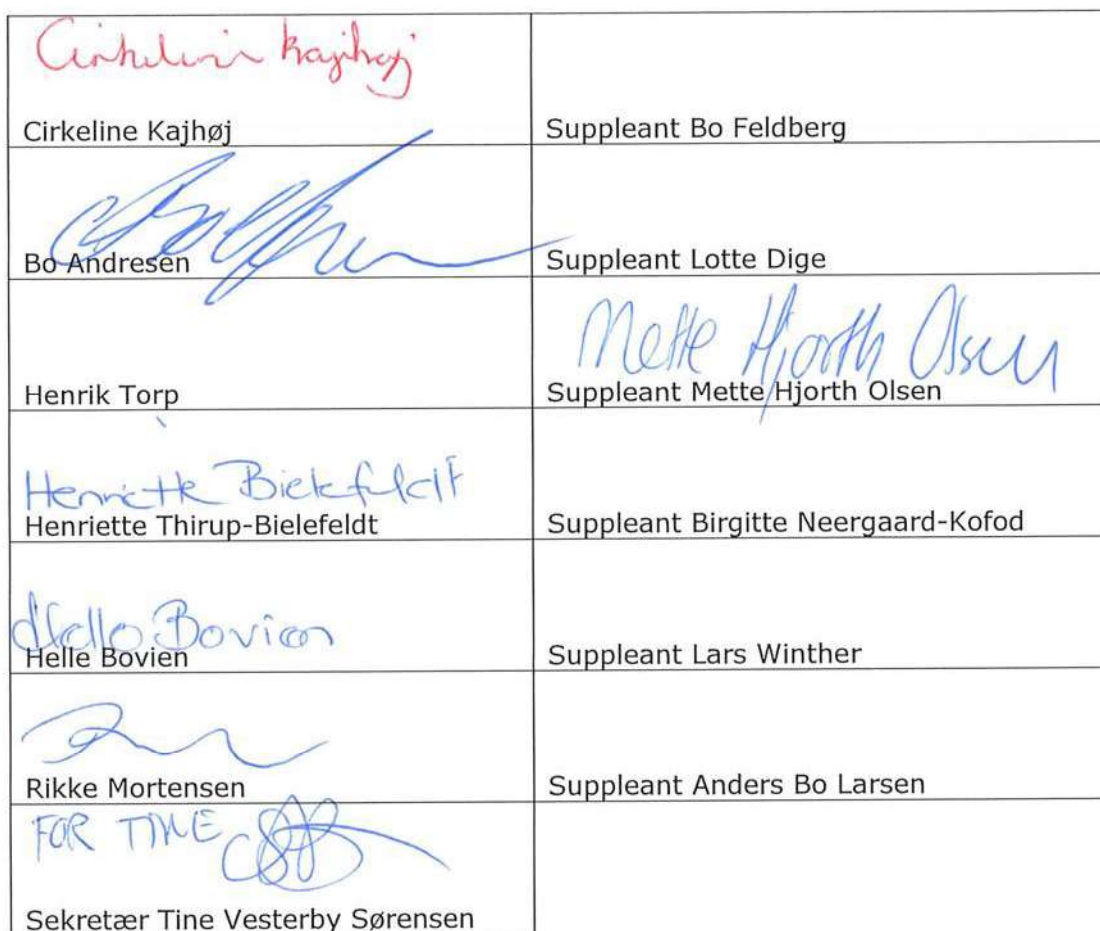 Cirkeline Kajhøj
Cirkeline Kajhøj
Suppleant Bo Feldberg
Bo Andresen
Suppleant Lotte Dige
Henrik Torp
Mette Hjorth Olsen
Suppleant Mette Hjorth Olsen
Henriette Bielefeldt
Henriette Thirup-Bielefeldt
Suppleant Birgitte Neergaard-Kofod
Helle Bovien
Helle Bovien
Suppleant Lars Winther
Rikke Mortensen
Suppleant Anders Bo Larsen
FOR TINE
Sekretær Tine Vesterby Sørensen